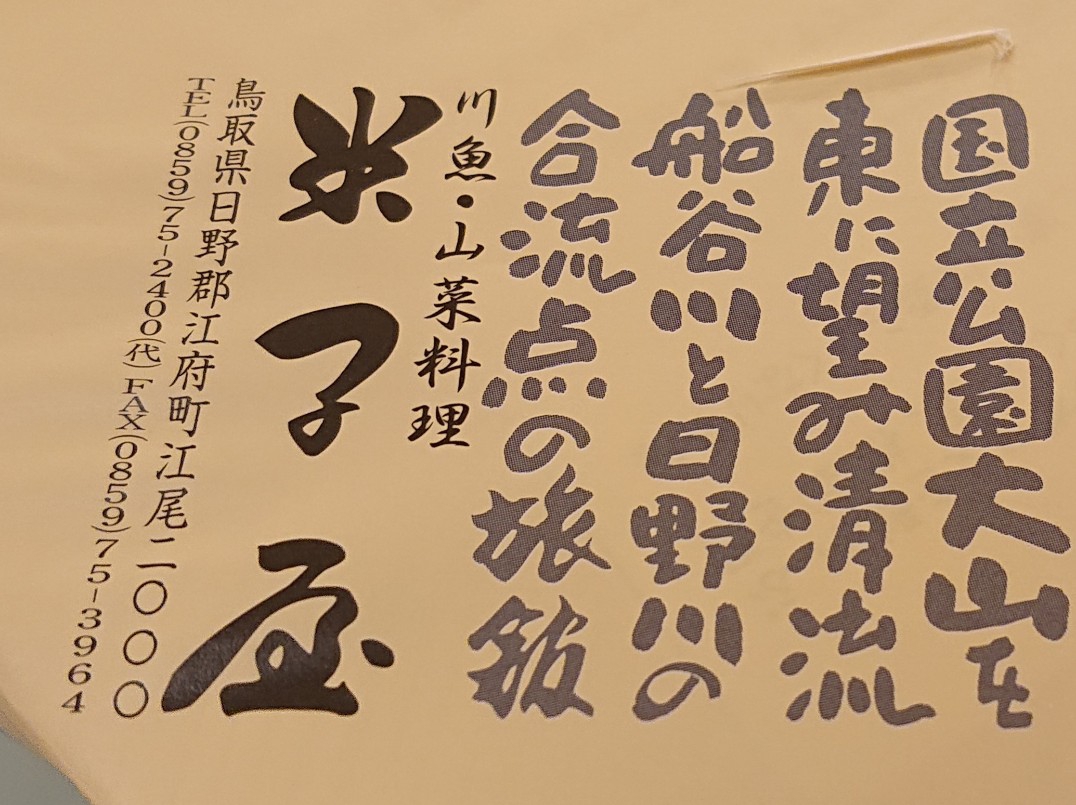 国立公園大山を
東に望み清流
船谷川と日野川の
合流点の旅館
川魚・山菜料理
米子屋
鳥取県日野郡江府町江尾二〇〇〇
TEL(0859)75-2400(代) FAX(0859)75-3964